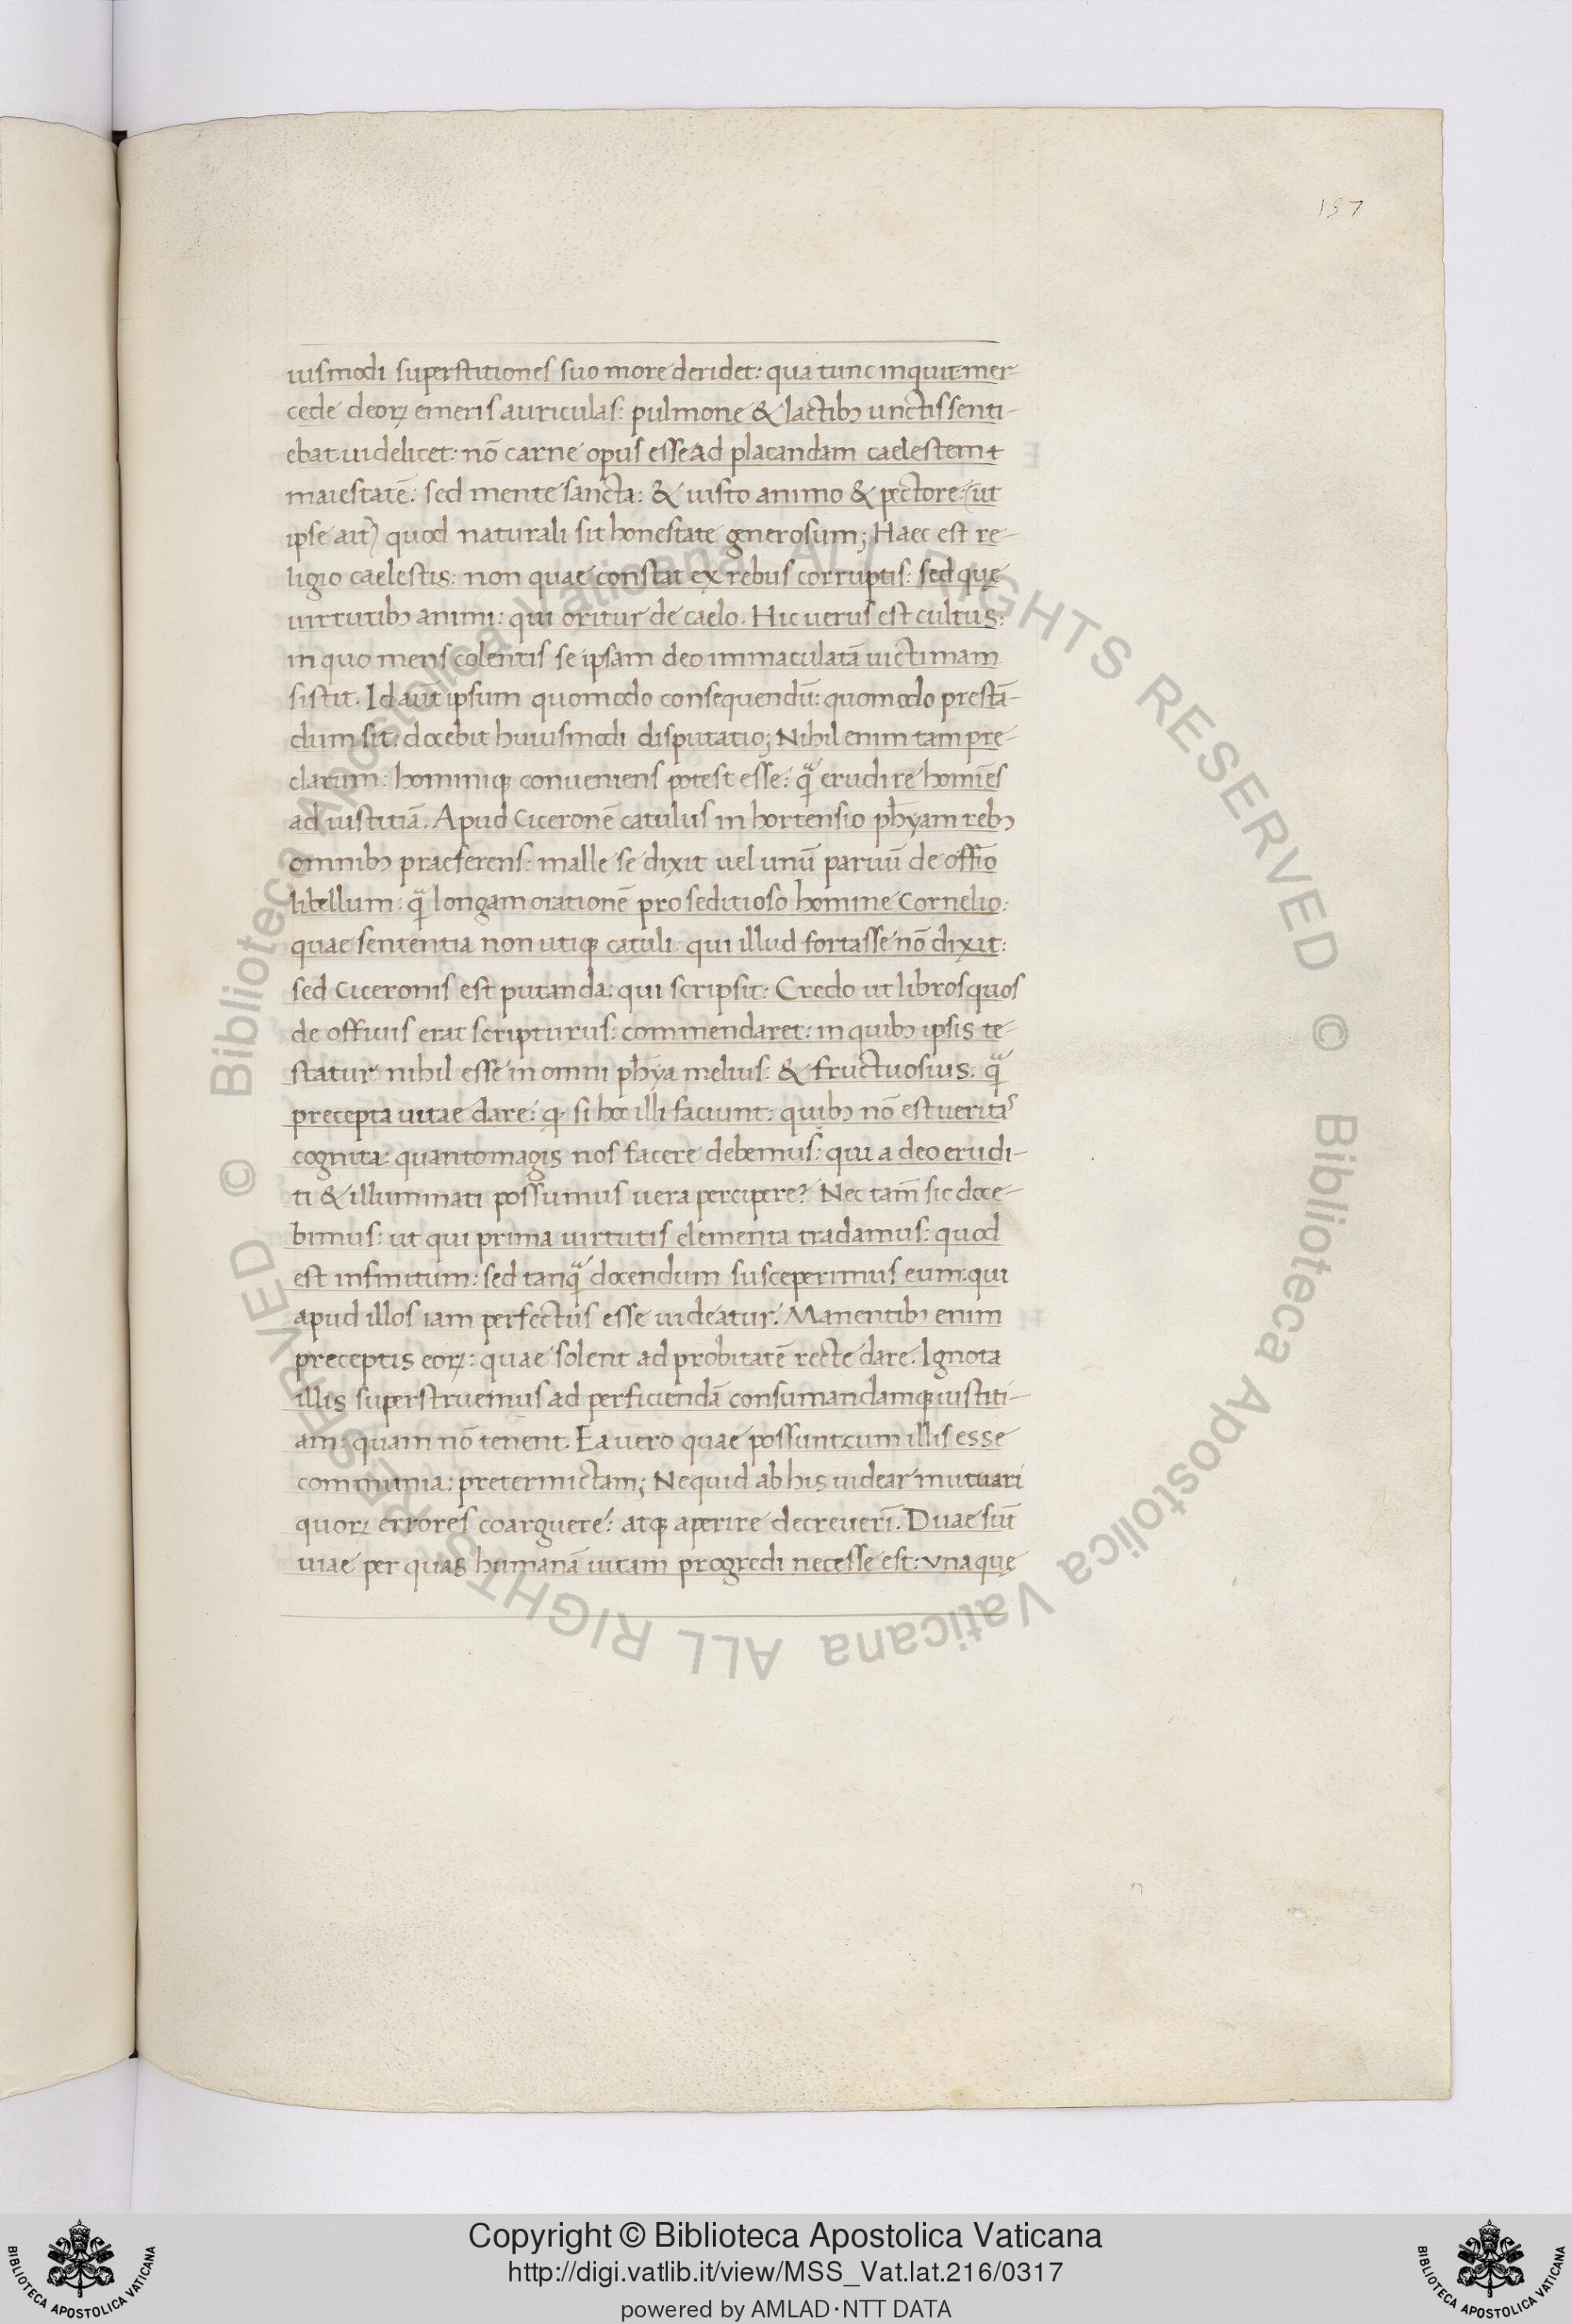 157
uismodi superstitiones suo more deridet: qua tunc inquit mer-
cede deoꝝ emeris auriculas: pulmone & lactibꝫ unctis senti-
ebat uidelicet: nō carne opus esse ad placandam caelestem
maiestatē: sed mente sancta: & iusto animo & pectore: (ut
ipse ait) quod naturali sit honestate generosum; Haec est re-
ligio caelestis: non quae constat ex rebus corruptis: sed quę
uirtutibꝫ animi: qui oritur de caelo. Hic uerus est cultus:
in quo mens colentis se ipsam deo immaculatā uictimam
sistit. Id aūt ipsum quomodo consequendū: quomodo prestā-
dum sit: docebit huiusmodi disputatio; Nihil enim tam pre-
clarum: hominiqꝫ conueniens potest esse: qᷓ erudire homīes
ad iustitiā. Apud Ciceronē catulus in hortensio ph̄yam rebꝫ
omnibꝫ praeferens: malle se dixit uel unū paruū de offīo
libellum: qᷓ longam orationē pro seditioso homine Cornelio:
quae sententia non utiqꝫ catuli: qui illud fortasse nō dixit:
sed Ciceronis est putanda: qui scripsit: Credo ut libros quos
de officiis erat scripturus: commendaret: in quibꝫ ipsis te-
statur nihil esse in omni ph̄ya melius: & fructuosius. qᷓ
precepta uitae dare: ꝙ si hoc illi faciunt: quibꝫ nō est ueritas
cognita: quanto magis nos facere debemus: qui a deo erudi-
ti & illuminati possumus uera percipere? Nec tam̄ sic doce-
bimus: ut qui prima uirtutis elementa tradamus: quod
est infinitum: sed tanqᷓ docendum susceperimus eum: qui
apud illos iam perfectus esse uideatur. Manentibꝫ enim
preceptis eoꝝ: quae solent ad probitatē recte dare. Ignota
illis superstruemus ad perficiendā consumandamqꝫ iustiti-
am: quam nō tenent. Ea uero quae possunt cum illis esse
communia: pretermictam; Nequid ab his uidear mutuari
quoꝝ errores coarguere: atqꝫ aperire decreuerī. Duae sūt
uiae per quas humanā uitam progredi necesse est: vna quę
© Biblioteca Apostolica Vaticana ALL RIGHTS RESERVED © Biblioteca Apostolica Vaticana ALL RIGHTS RESERVED
BIBLIOTECA APOSTOLICA VATICANA
Copyright © Biblioteca Apostolica Vaticana
http://digi.vatlib.it/view/MSS_Vat.lat.216/0317
powered by AMLAD·NTT DATA
BIBLIOTECA APOSTOLICA VATICANA